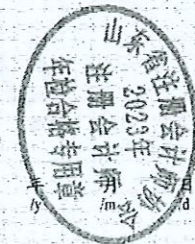 山东省注册会计师协会
2023年
注册会计师
年检合格专用章
年 月 日
y m d